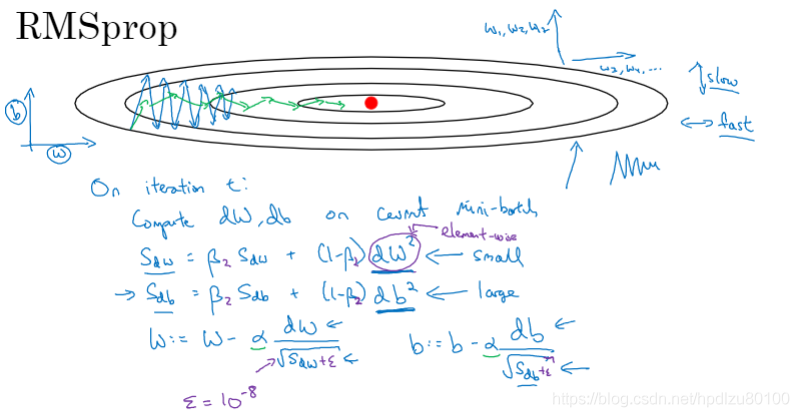 RMSprop
w₁, w₂, w₂
w₃, w₄, ...
slow
b
w
fast
On iteration t:
Compute dW, db on current mini-batch
element-wise
S_dw = β₂ S_dw + (1-β₂) dW² ← small
→ S_db = β₂ S_db + (1-β₂) db² ← large
W := W - α dW / √S_dw+ε ←
b := b - α db / √S_db+ε ←
ε = 10⁻⁸
https://blog.csdn.net/hpdlzu80100